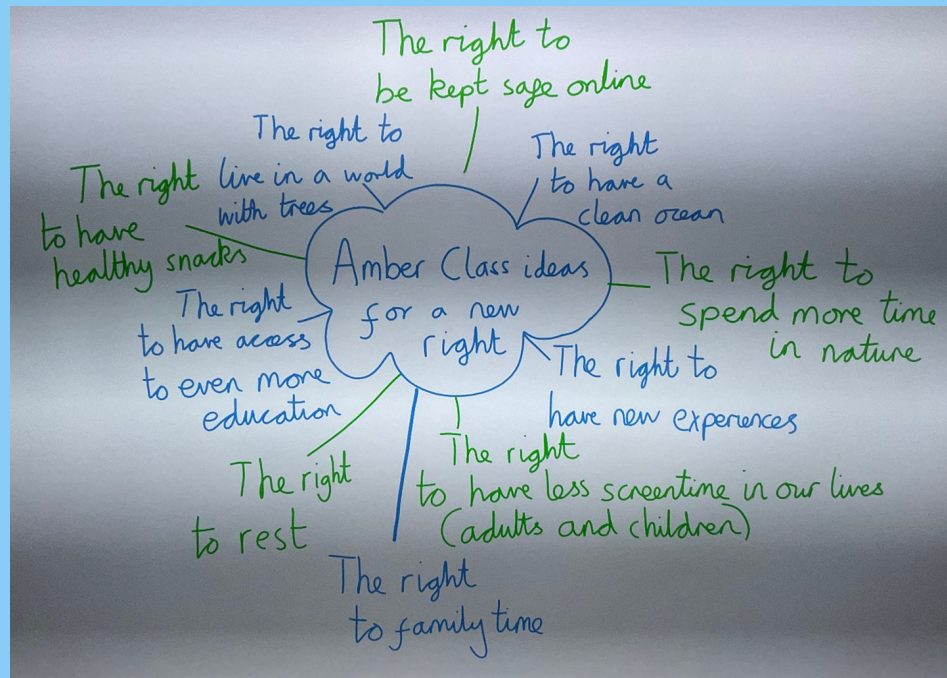 Amber Class ideas
for a new
right
The right to
be kept safe online
The right
to have a
clean ocean
The right to
spend more time
in nature
The right to
have new experiences
The right
to have less screentime in our lives
(adults and children)
The right
to family time
The right
to rest
The right
to have access
to even more
education
The right
to have
healthy snacks
The right to
live in a world
with trees